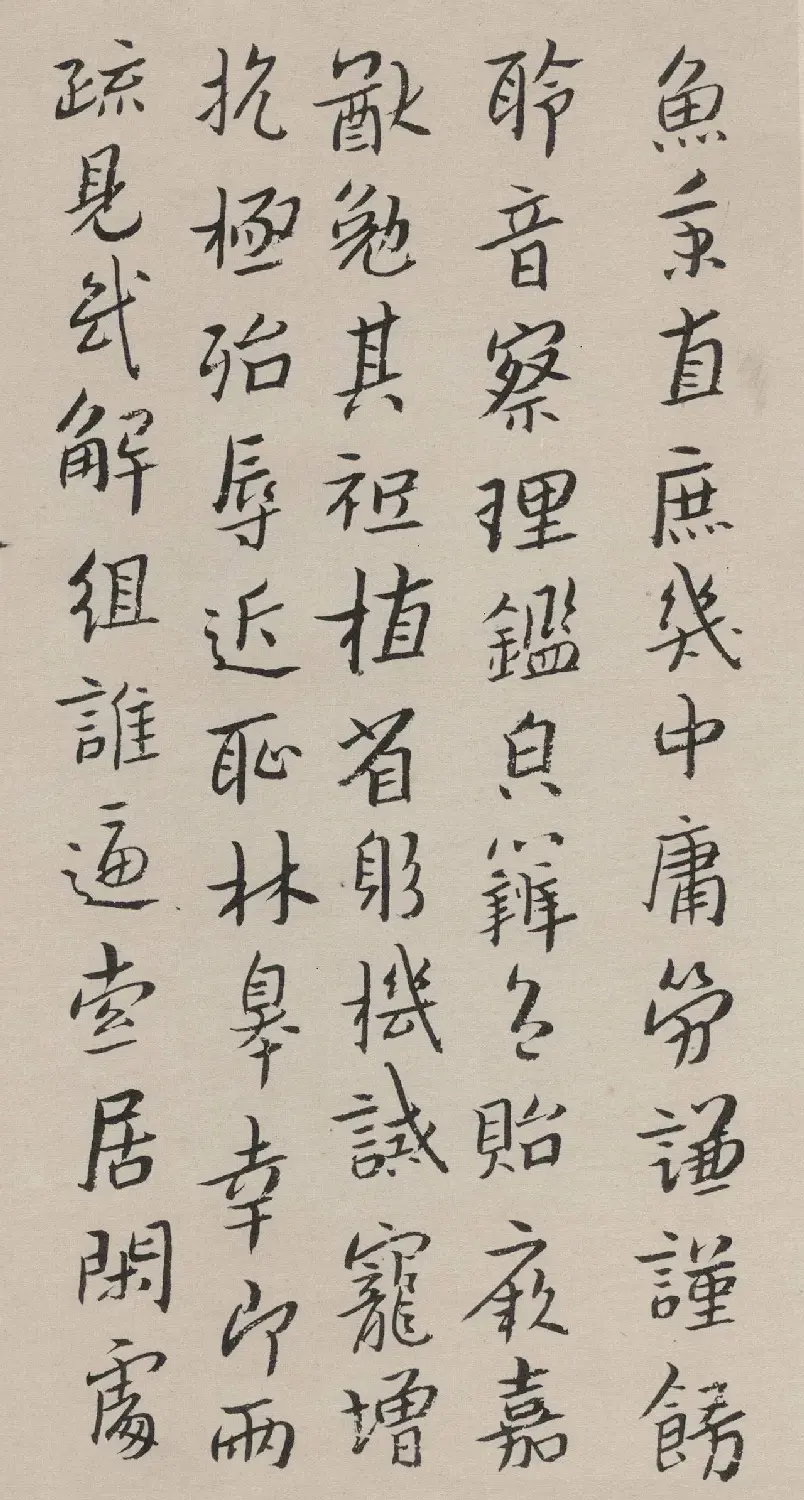 魚秉直庶幾中庸勞謙謹餝
聆音察理鑑皃辯色貽厥嘉
猷勉其祗植省躬機誡寵增
抗極殆辱近恥林皋幸即兩
疏見機解組誰逼索居閑處